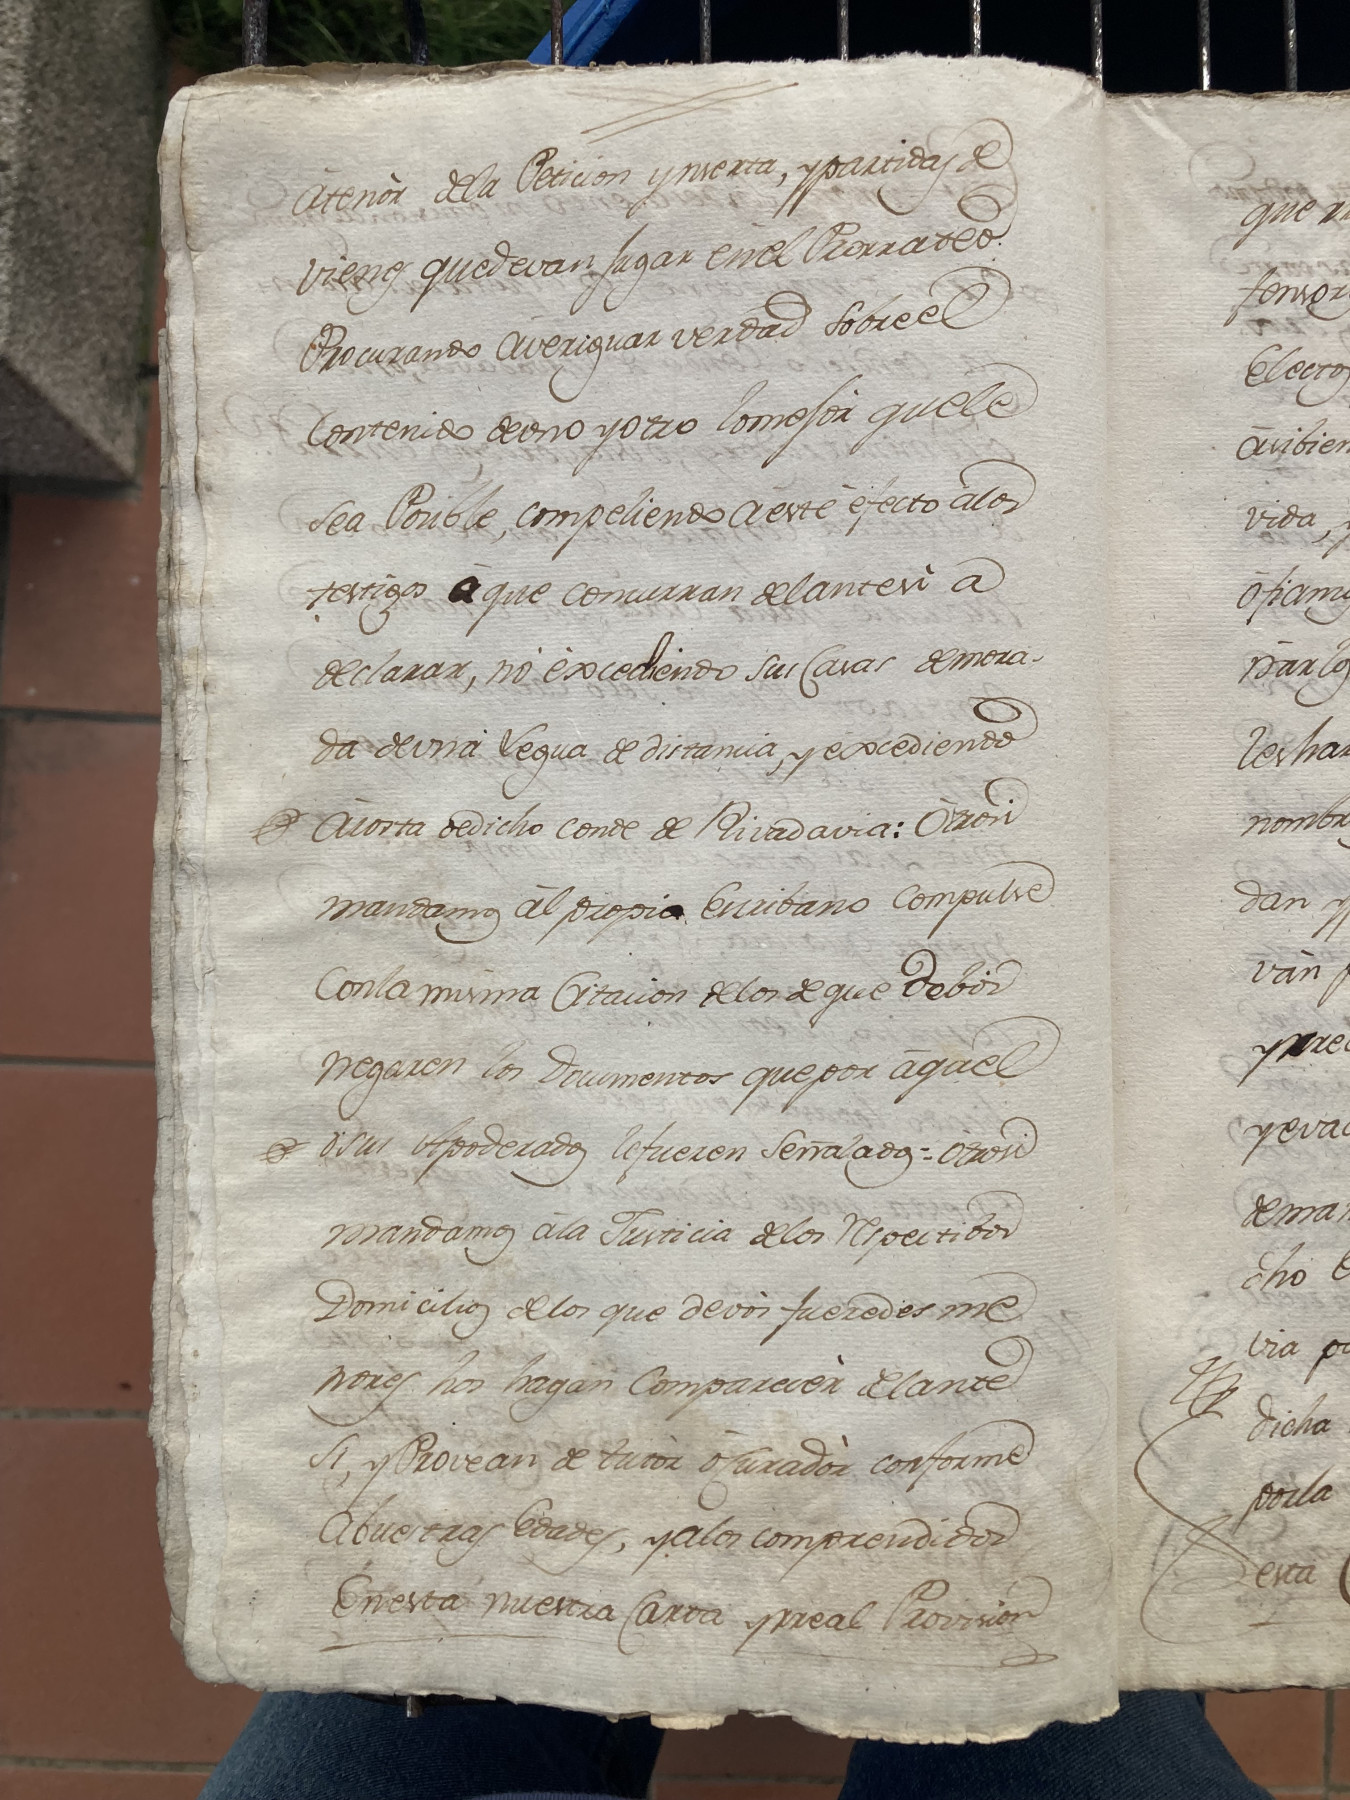 âtenòr dela Peticion ynserta, ypartidas de
vienes quedevan jugar enèl Prorrateo.
Procurando âveriguar verdad sobreel
Contenido deuno yotro lomesor quele
sea Posible, compeliendo àeste èfecto âlos
testigos â que concurran delantesì a
declarar, nò èxcediendo sus Casas demora-
da deuna Legua de distancia, y excediendo
âcosta dedicho Conde de Rivadavia: Otrosi
mandamos âl propio Escribano Compulse
Conla misma Citacion delos deque Debos
negaren los Documentos quepor âquel
ôsus Apoderados lefueren señalados = otrosi
mandamos âla Justicia delos Respectibos
Domicilios delos que devos fueredes me
nores hos hagan Comparecèr delante
si, y Provean de tutòr ôCuradòr conforme
âbuestras Edades, yalos comprendidos
Enesta nuestra Carta yreal Provision
que
Electos
vida,
nombr
dan
ván
demar
cho
via
dicha
porla
esta